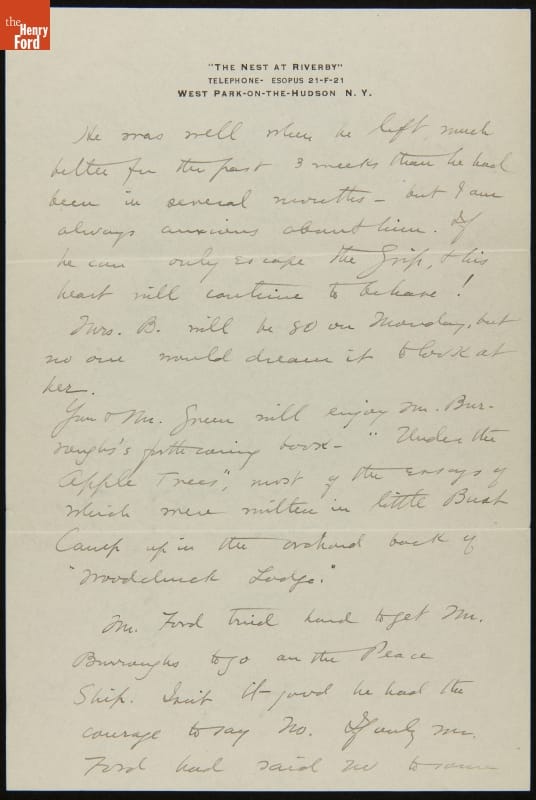 the
Henry
Ford
"THE NEST AT RIVERBY"
TELEPHONE- ESOPUS 21-F-21
WEST PARK-ON-THE-HUDSON N. Y.
He was well when he left, much
better for the past 3 weeks than he had
been in several months – but I am
always anxious about him. If
he can only escape the Grip, & his
heart will continue to behave!
Mrs. B. will be 80 on Monday, but
no one would dream it to look at
her.
You & Mr. Green will enjoy Mr. Bur-
roughs's forthcoming book – "Under the
Apple Trees", most of the essays of
which were written in little Bush
Camp up in the orchard back of
"Woodchuck Lodge."
Mr. Ford tried hard to get Mr.
Burroughs to go on the Peace
Ship. Isn't it good he had the
courage to say No. If only Mr.
Ford had said no to some